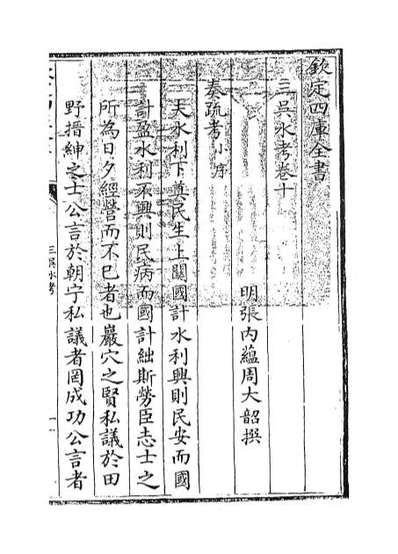 欽定四庫全書
三吳水考卷十
明張內蘊周大韶撰
奏疏考小序
夫水利下奠民生上關國計水利興則民安而國
計盈水利不興則民病而國計絀斯勞臣志士之
所為日夕經營而不巳者也巖穴之賢私議於田
野搢紳之士公言於朝宁私議者罔成功公言者
三吳水考